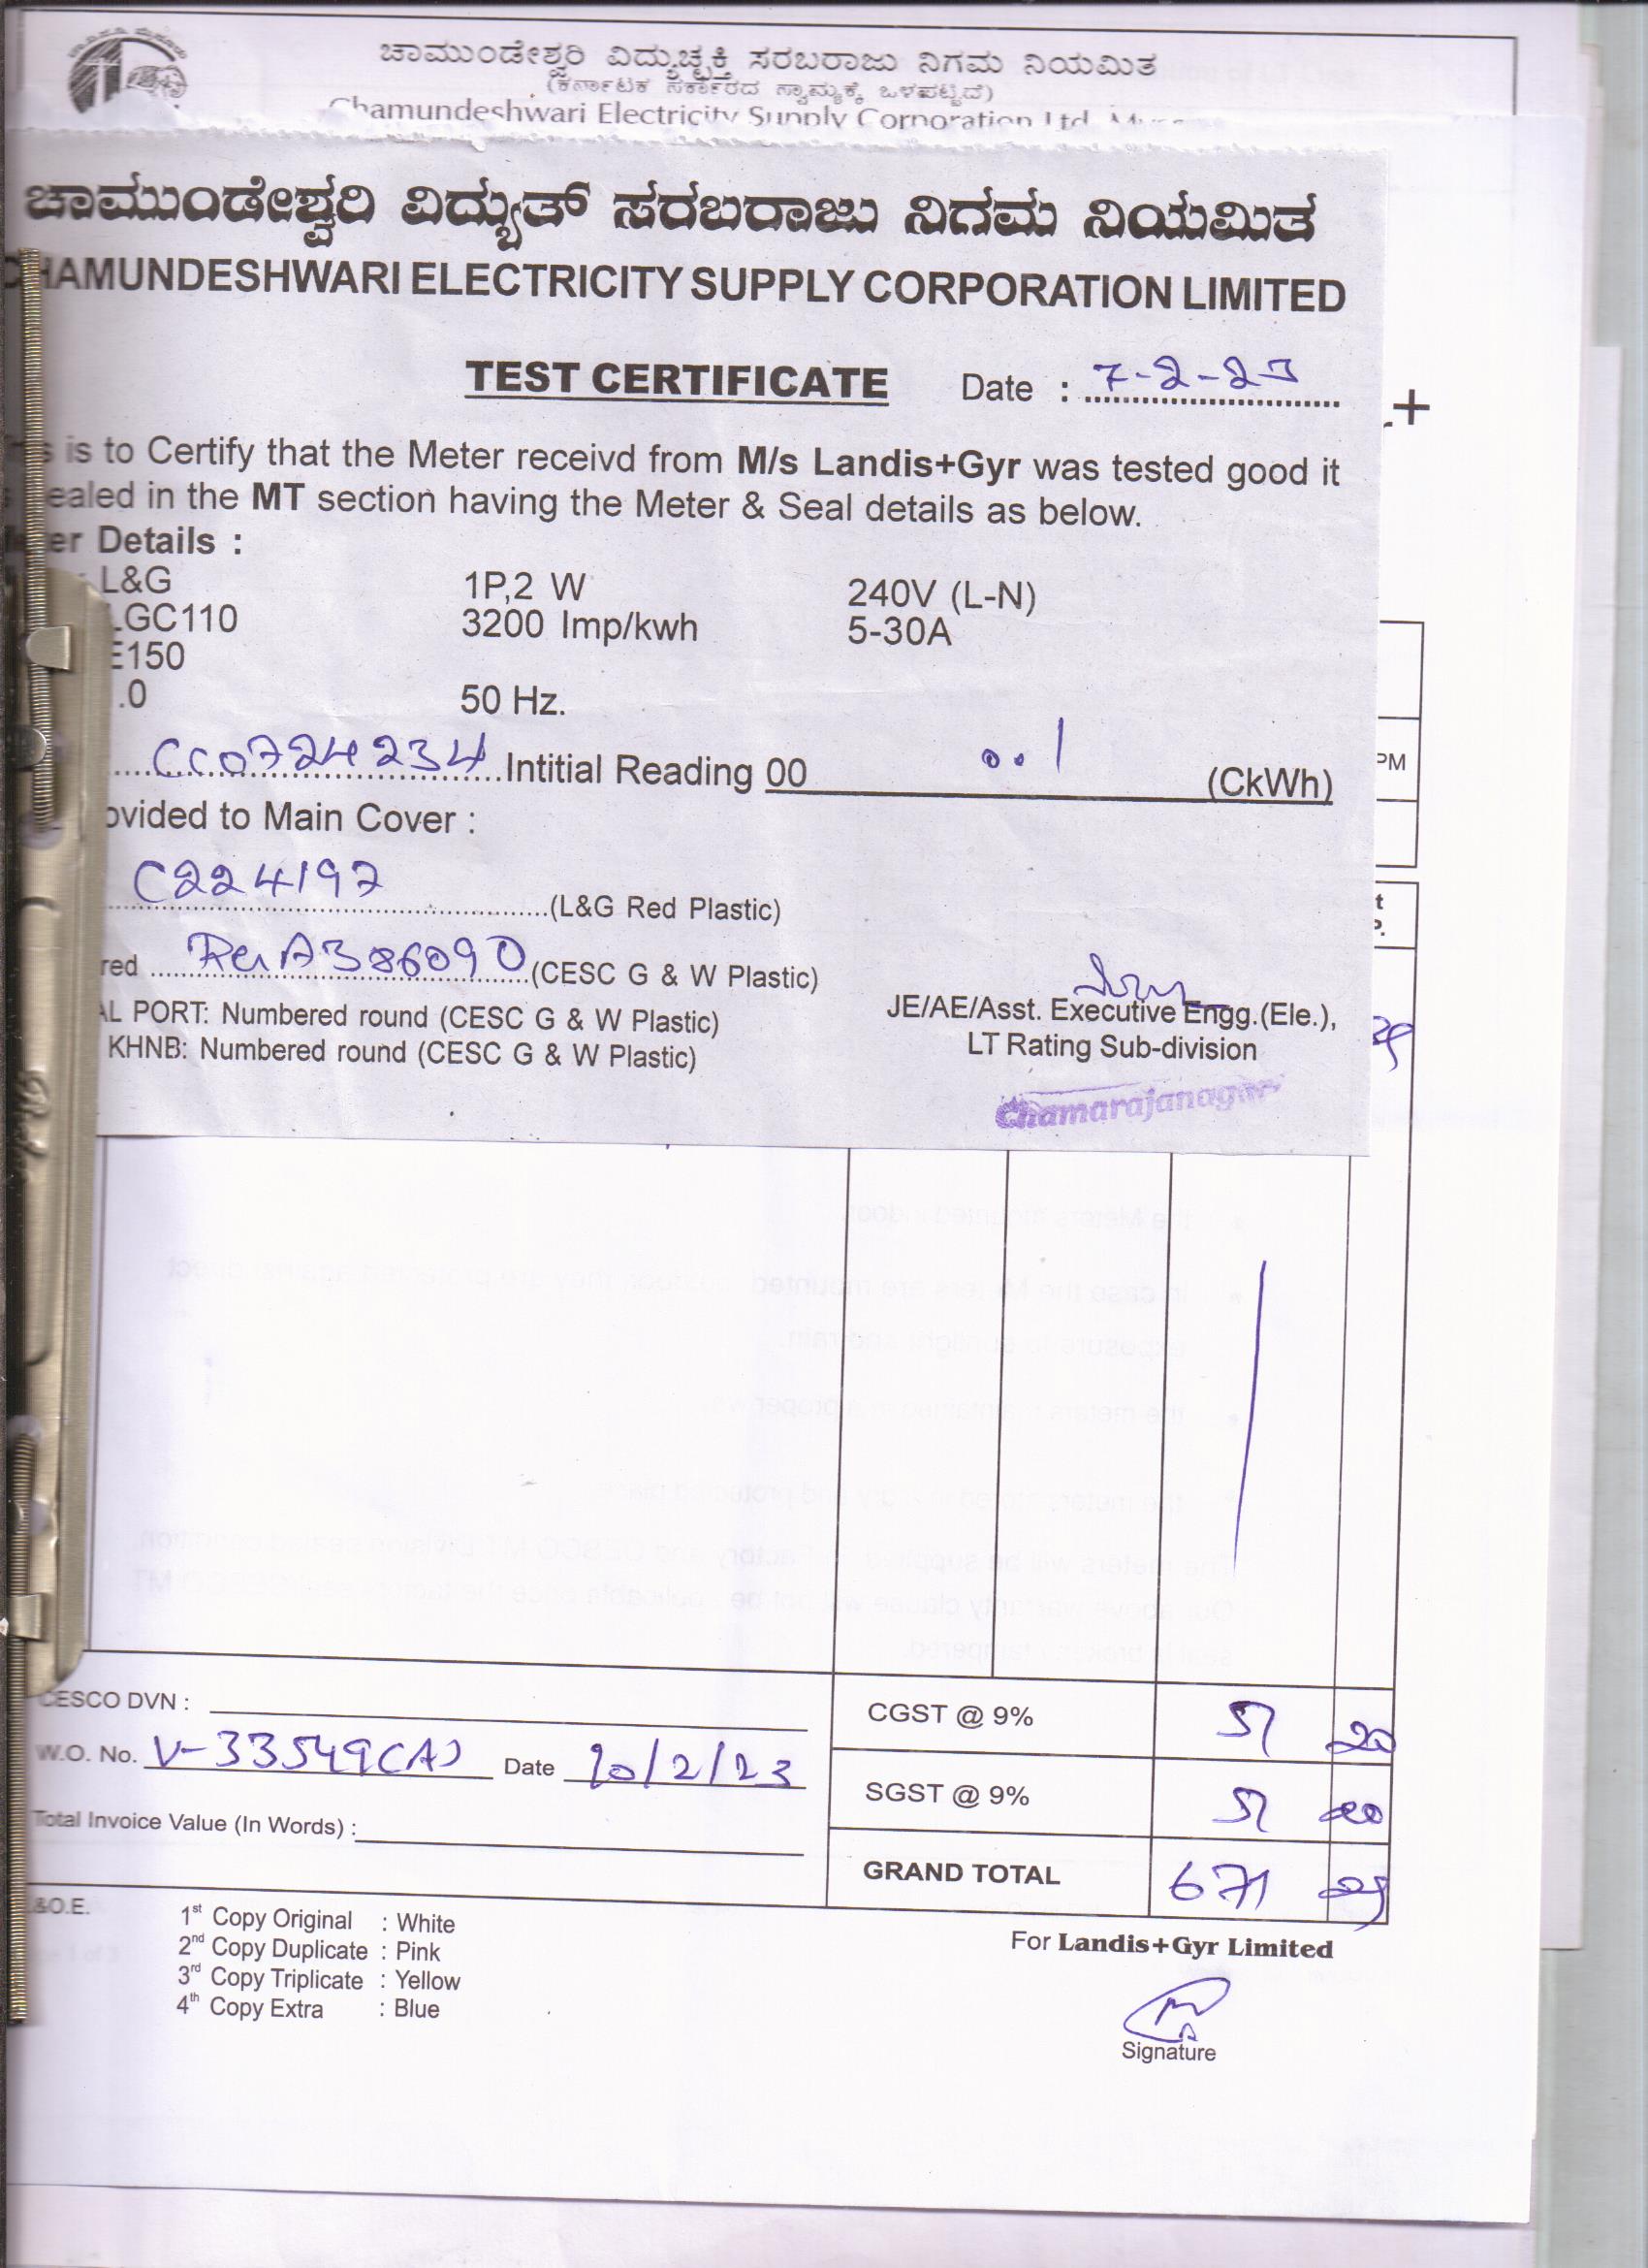 ಚಾಮುಂಡೇಶ್ವರಿ ವಿದ್ಯುಚ್ಛಕ್ತಿ ಸರಬರಾಜು ನಿಗಮ ನಿಯಮಿತ
(ಕರ್ನಾಟಕ ಸರ್ಕಾರದ ಸ್ವಾಮ್ಯಕ್ಕೆ ಒಳಪಟ್ಟಿದೆ)
Chamundeshwari Electricity Supply Corporation Ltd.
ಚಾಮುಂಡೇಶ್ವರಿ ವಿದ್ಯುತ್ ಸರಬರಾಜು ನಿಗಮ ನಿಯಮಿತ
CHAMUNDESHWARI ELECTRICITY SUPPLY CORPORATION LIMITED
TEST CERTIFICATE Date : 7-2-23
is to Certify that the Meter receivd from M/s Landis+Gyr was tested good it
ealed in the MT section having the Meter & Seal details as below.
er Details :
L&G 1P,2 W 240V (L-N)
LGC110 3200 Imp/kwh 5-30A
E150
.0 50 Hz.
CC0724234 Intitial Reading 00 0.1 (CkWh)
ovided to Main Cover :
C224197 (L&G Red Plastic)
red A386090 (CESC G & W Plastic)
AL PORT: Numbered round (CESC G & W Plastic)
KHNB: Numbered round (CESC G & W Plastic)
JE/AE/Asst. Executive Engg.(Ele.),
LT Rating Sub-division
Chamarajanagar
PM
CESCO DVN :
W.O. No. V-33549(A) Date 20/2/23
Total Invoice Value (In Words) :
CGST @ 9% 51 20
SGST @ 9% 51 20
GRAND TOTAL 671 25
&O.E.
1st Copy Original : White
2nd Copy Duplicate : Pink
3rd Copy Triplicate : Yellow
4th Copy Extra : Blue
For Landis+Gyr Limited
Signature